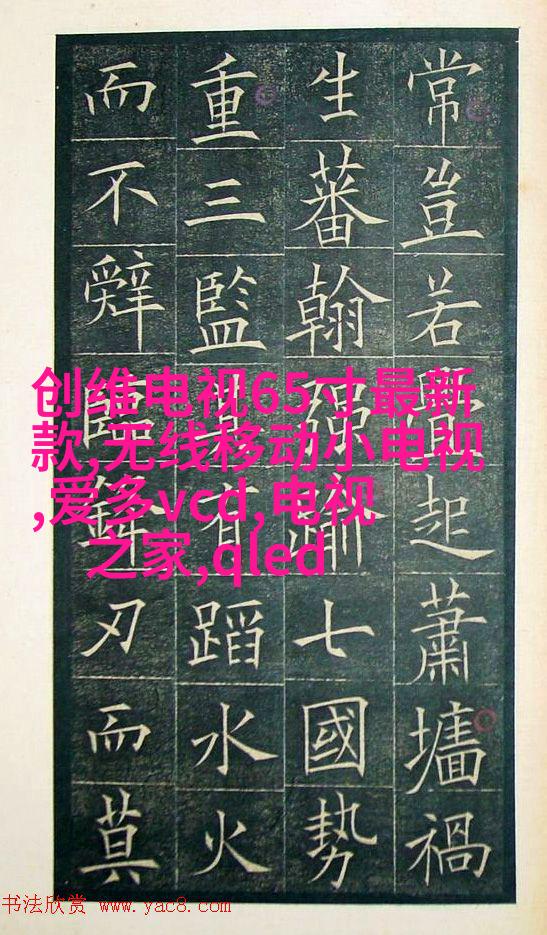 常豈若起蕭墻禍
生蕃翰强踰七國勢
重三監有蹈水火
而不辤臨鋒刃而莫
创维电视65寸最新
款,无线移动小电视
,爱多vcd,电视
之家,qled
书法欣赏 www.yac8.com